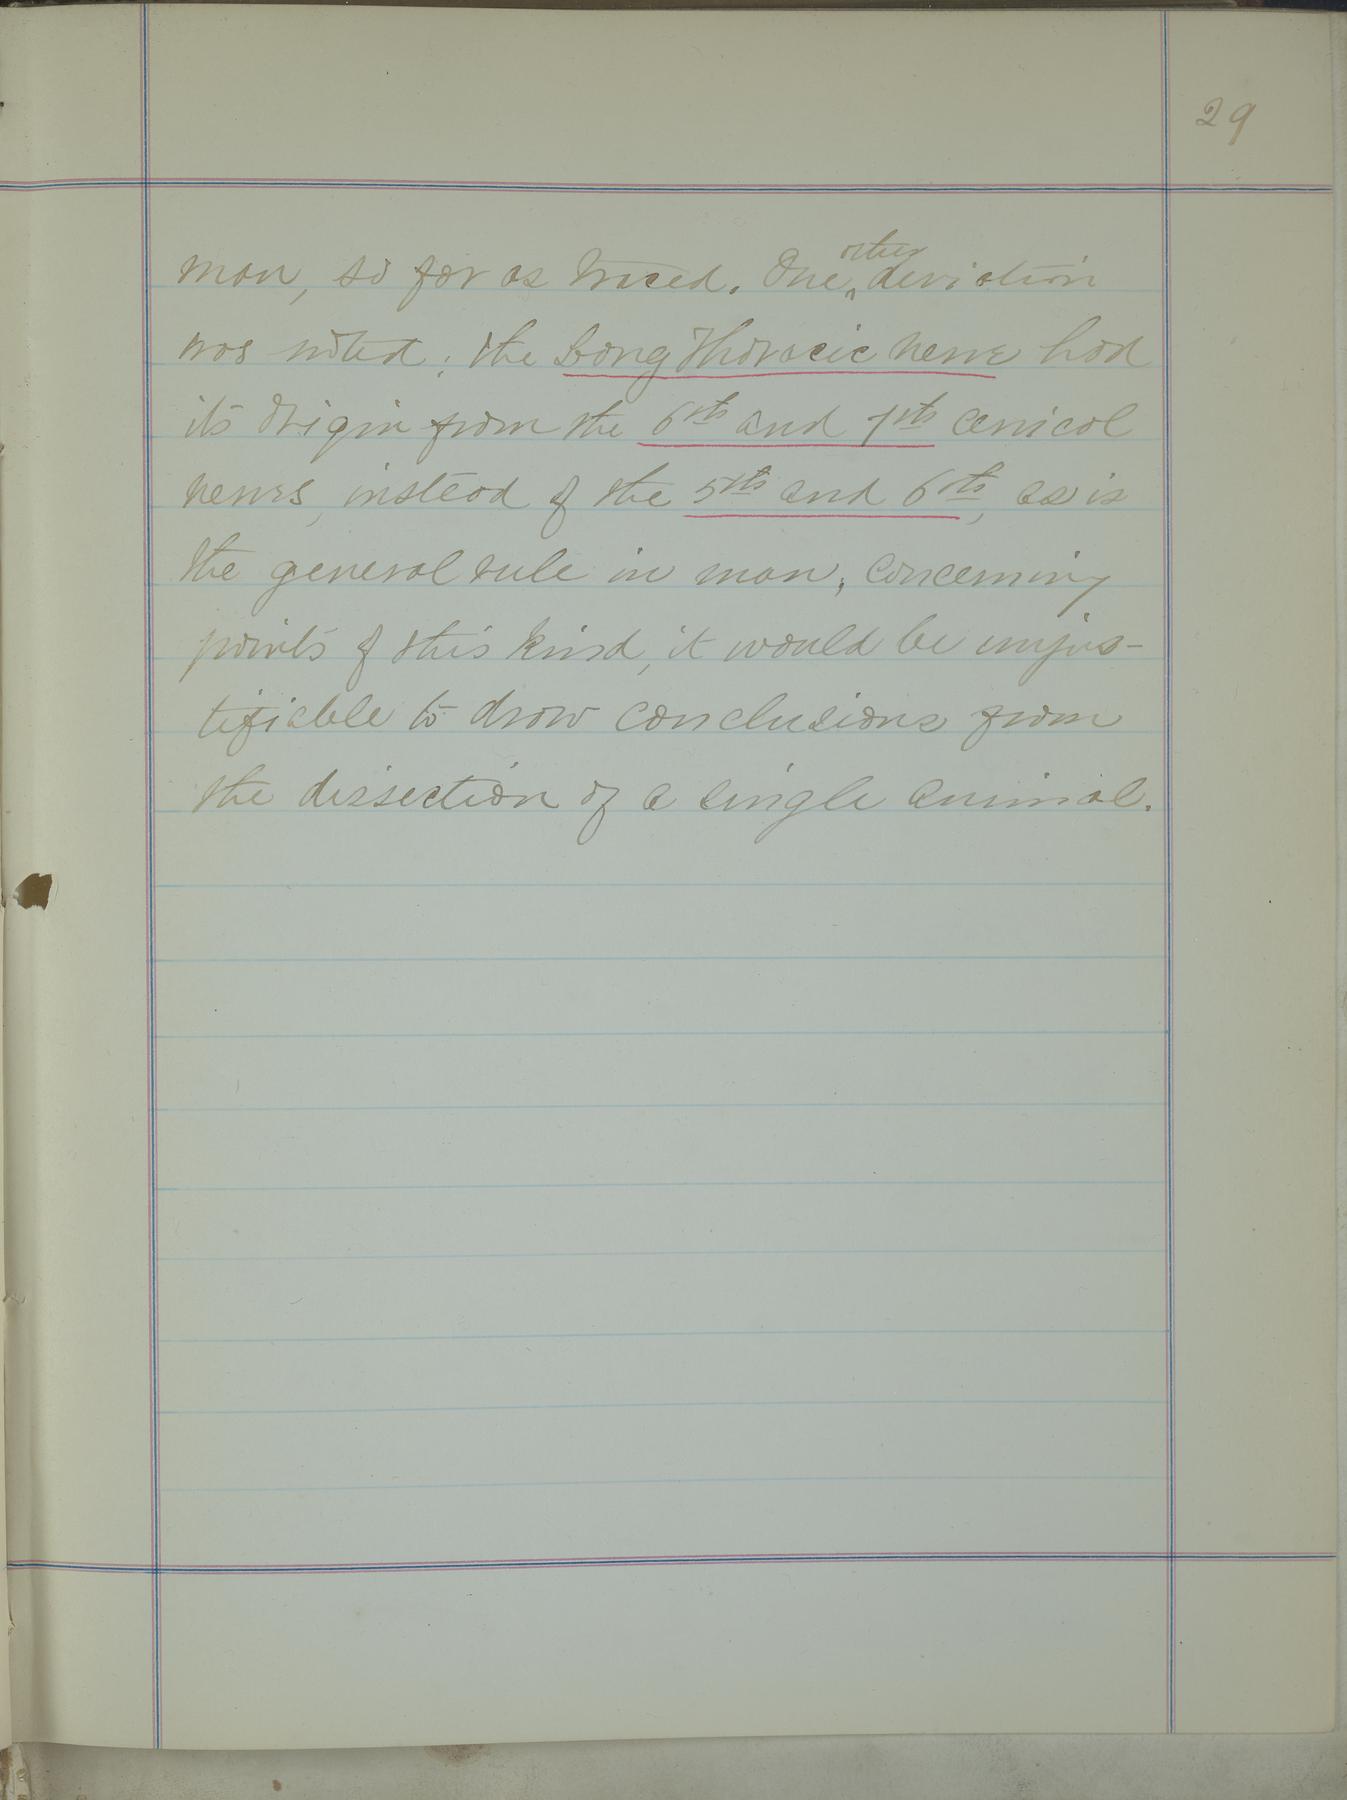 29
man, so far as traced. One other deviation
was noted; the Long Thoracic nerve had
its origin from the 6th and 7th cervical
nerves, instead of the 5th and 6th, as is
the general rule in man; concerning
points of this kind, it would be unjus-
tifiable to draw conclusions from
the dissection of a single animal.